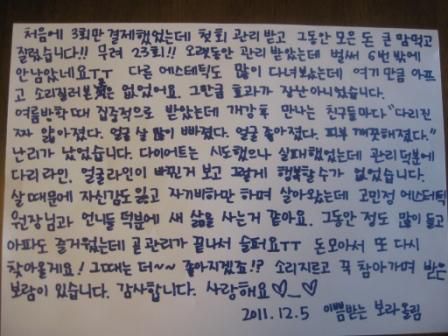 처음에 3회만 결제했었는데 첫회 관리받고 그동안 모은 돈 큰 맘먹고
질렀습니다!! 무려 23회!! 오랫동안 관리 받았는데 벌써 6번 밖에
안남았네요ㅜㅜ 다른 에스테틱도 많이 다녀보았는데 여기 만큼 아프
고 소리질러본 곳은 없었어요. 그만큼 효과가 장난아니었습니다.
여름방학때 집중적으로 받았는데 개강후 만나는 친구들마다 "다리진
짜 얇아졌다. 얼굴 살 많이 빠졌다. 얼굴 좋아졌다. 피부 깨끗해졌다."
난리가 났었습니다. 다이어트는 시도했으나 실패했었는데 관리 덕분에
다리라인, 얼굴라인이 바뀐거 보고 그렇게 행복할 수가 없었습니다.
살 때문에 자신감도 잃고 자기비하만 하며 살아왔는데 고민정 에스테틱
원장님과 언니들 덕분에 새 삶을 사는거 같아요. 그동안 정도 많이 들고
아파도 즐거웠는데 곧 관리가 끝나서 슬퍼요ㅜㅜ 돈모아서 또 다시
찾아올게요! 그때는 더~~ 좋아지겠죠!? 소리지르고 꾹 참아가며 받은
보람이 있습니다. 감사합니다. 사랑해요♡_♡
2011.12.5 이쁨받는 보라올림